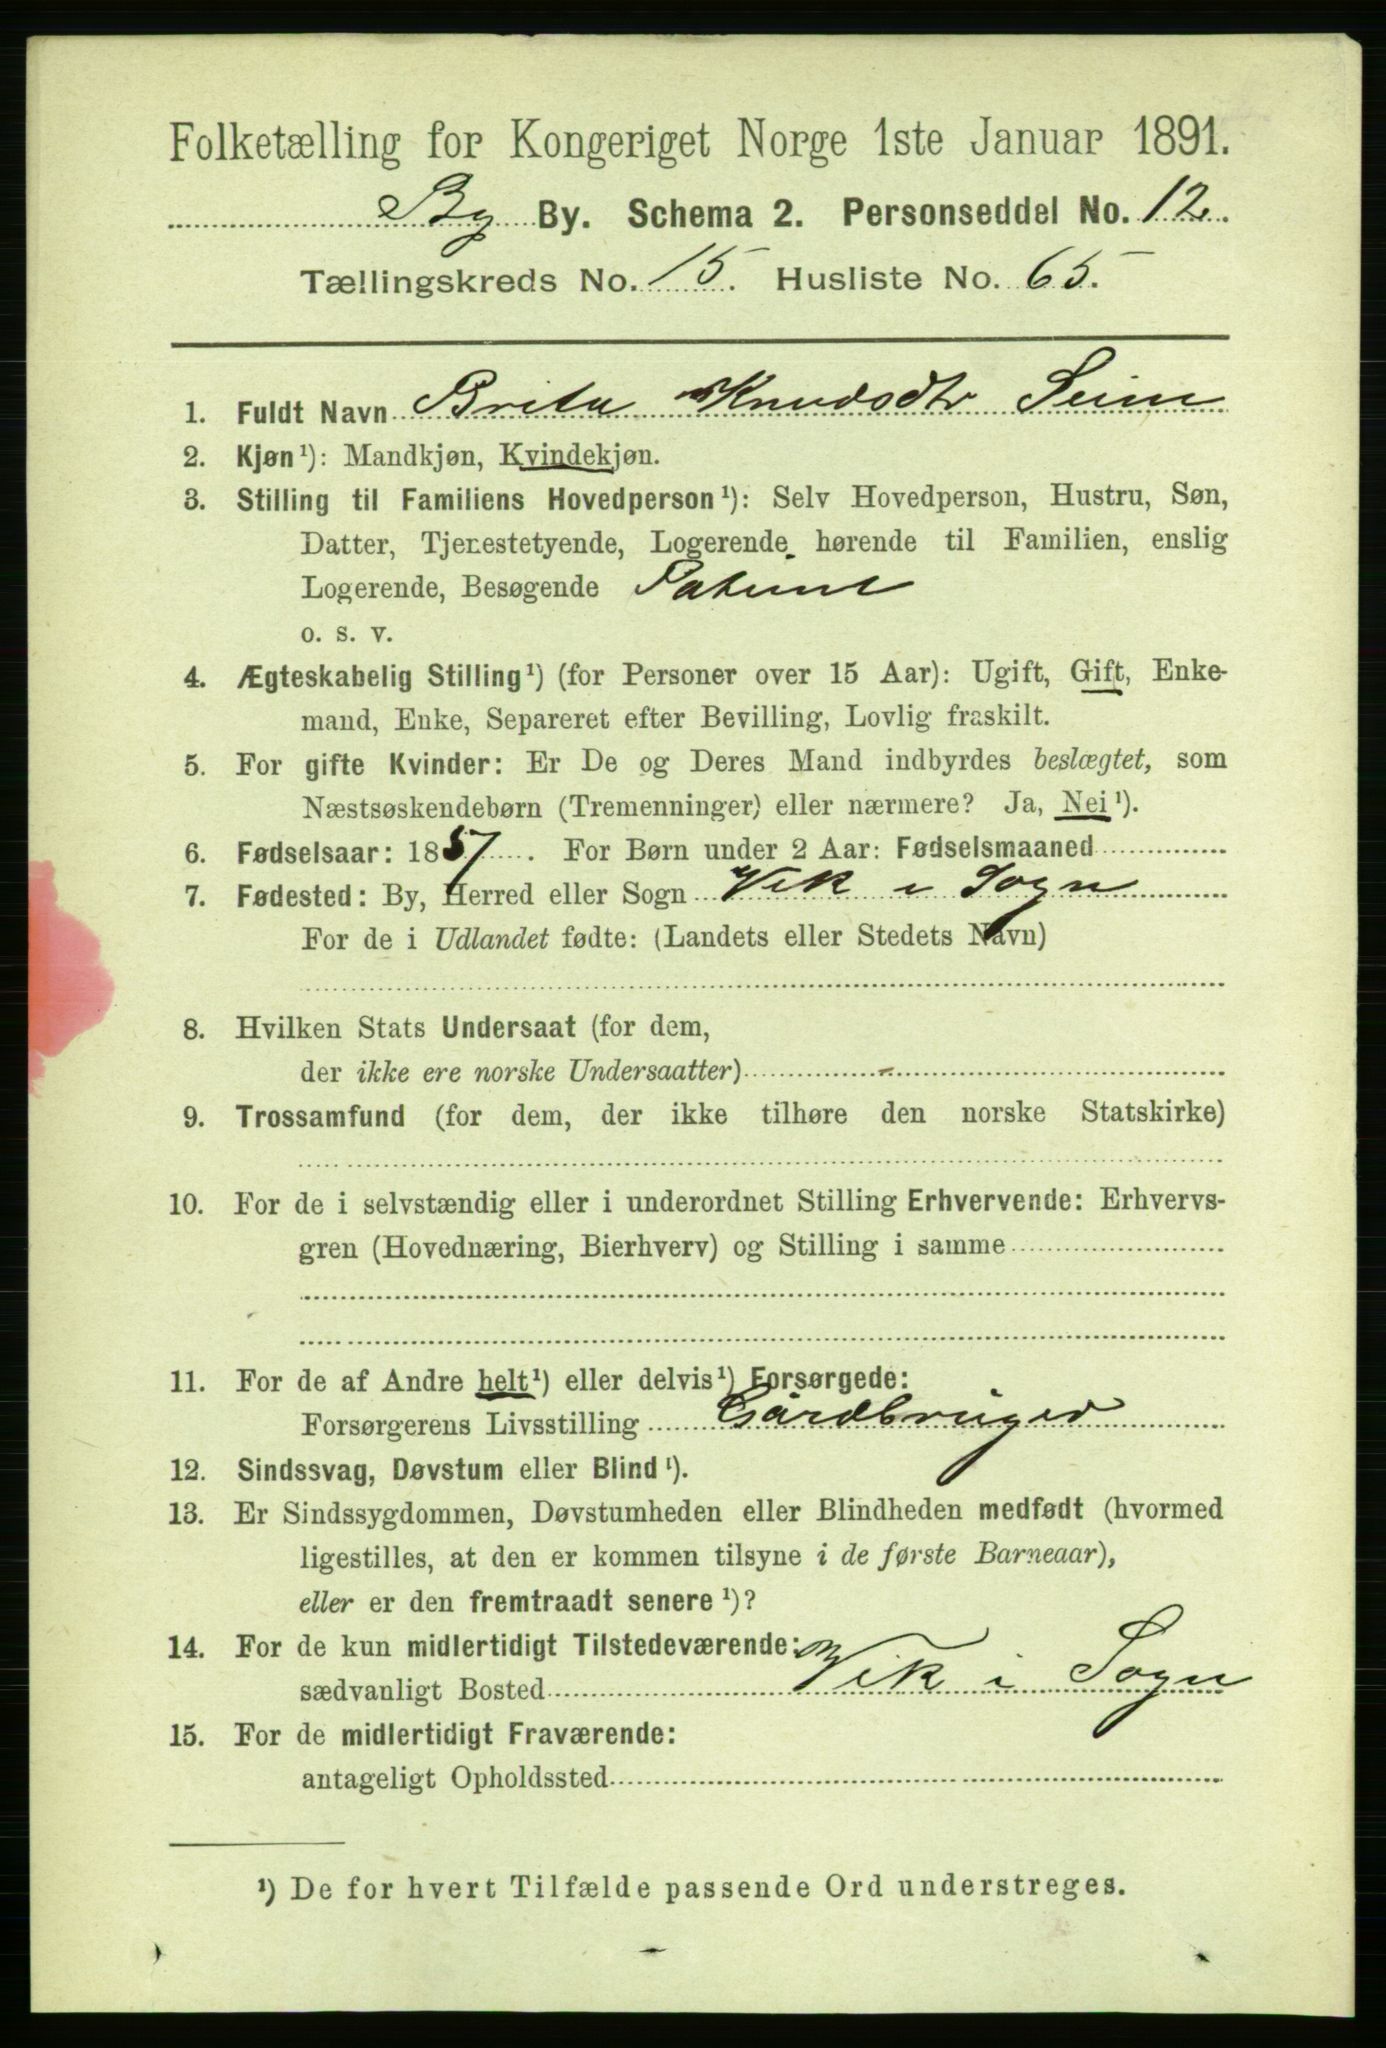 Folketælling for Kongeriget Norge 1ste Januar 1891.
By. Schema 2. Personseddel No. 12.
Tællingskreds No. 15. Husliste No. 65.
1. Fuldt Navn Brita Knudsdtr Seim
2. Kjøn¹): Mandkjøn, Kvindekjøn.
3. Stilling til Familiens Hovedperson¹): Selv Hovedperson, Hustru, Søn,
Datter, Tjenestetyende, Logerende hørende til Familien, enslig
Logerende, Besøgende Patient
o. s. v.
4. Ægteskabelig Stilling¹) (for Personer over 15 Aar): Ugift, Gift, Enke-
mand, Enke, Separeret efter Bevilling, Lovlig fraskilt.
5. For gifte Kvinder: Er De og Deres Mand indbyrdes beslægtet, som
Næstsøskendebørn (Tremenninger) eller nærmere? Ja, Nei¹).
6. Fødselsaar: 1857. For Børn under 2 Aar: Fødselsmaaned
7. Fødested: By, Herred eller Sogn Vik i Sogn
For de i Udlandet fødte: (Landets eller Stedets Navn)
8. Hvilken Stats Undersaat (for dem,
der ikke ere norske Undersaatter)
9. Trossamfund (for dem, der ikke tilhøre den norske Statskirke)
10. For de i selvstændig eller i underordnet Stilling Erhvervende: Erhvervs-
gren (Hovednæring, Bierhverv) og Stilling i samme
11. For de af Andre helt¹) eller delvis¹) Forsørgede:
Forsørgerens Livsstilling Gårdbruger
12. Sindssvag, Døvstum eller Blind¹).
13. Er Sindssygdommen, Døvstumheden eller Blindheden medfødt (hvormed
ligestilles, at den er kommen tilsyne i de første Barneaar),
eller er den fremtraadt senere¹)?
14. For de kun midlertidigt Tilstedeværende:
sædvanligt Bosted Vik i Sogn
15. For de midlertidigt Fraværende:
antageligt Opholdssted
¹) De for hvert Tilfælde passende Ord understreges.